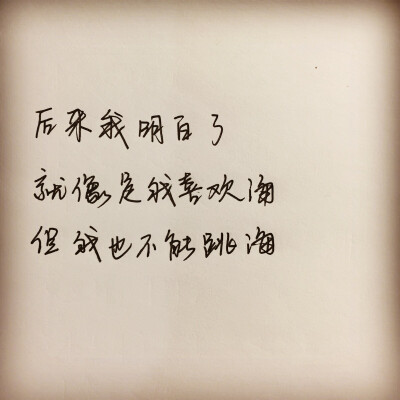 后来我明白了
就像是我喜欢海
但我也不能跳海